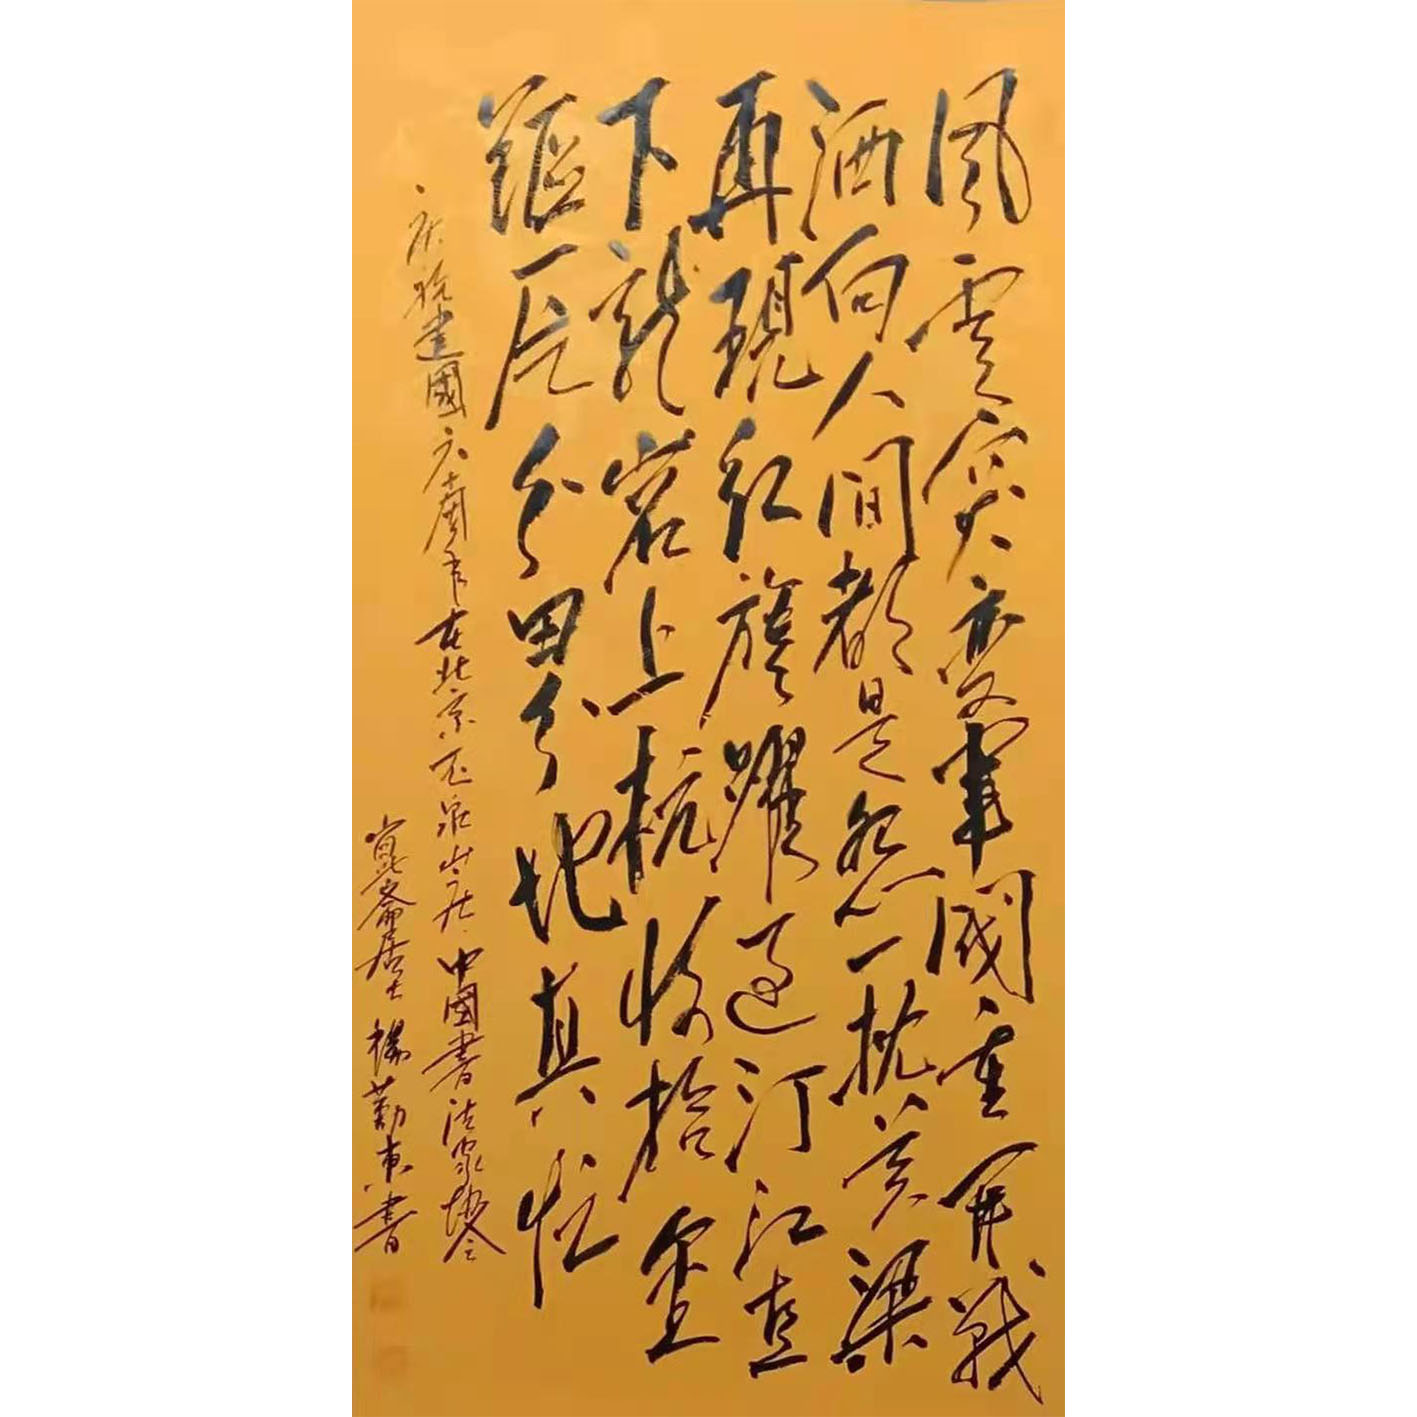 風雲突变軍閥重開戰
洒向人間都是怨一枕黄粱
再現红旗躍过汀江直
下龍岩上杭收拾金
甌一片分田分地真忙
庆祝建國六十周年在北京玉泉山庄中國書法家协会
斋居士 楊勤東書